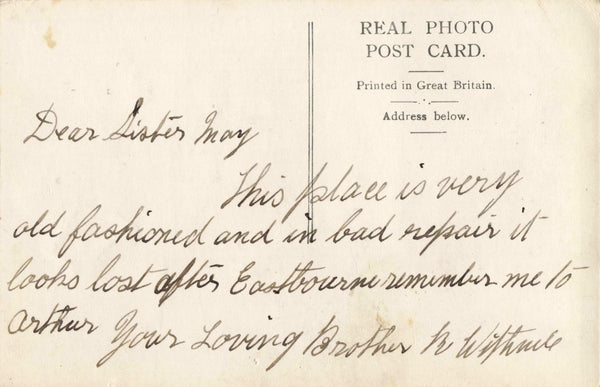 REAL PHOTO
POST CARD.
Printed in Great Britain.
Address below.
Dear Sister May
This place is very
old fashioned and in bad repair it
looks lost after Eastbourne remember me to
Arthur Your Loving Brother